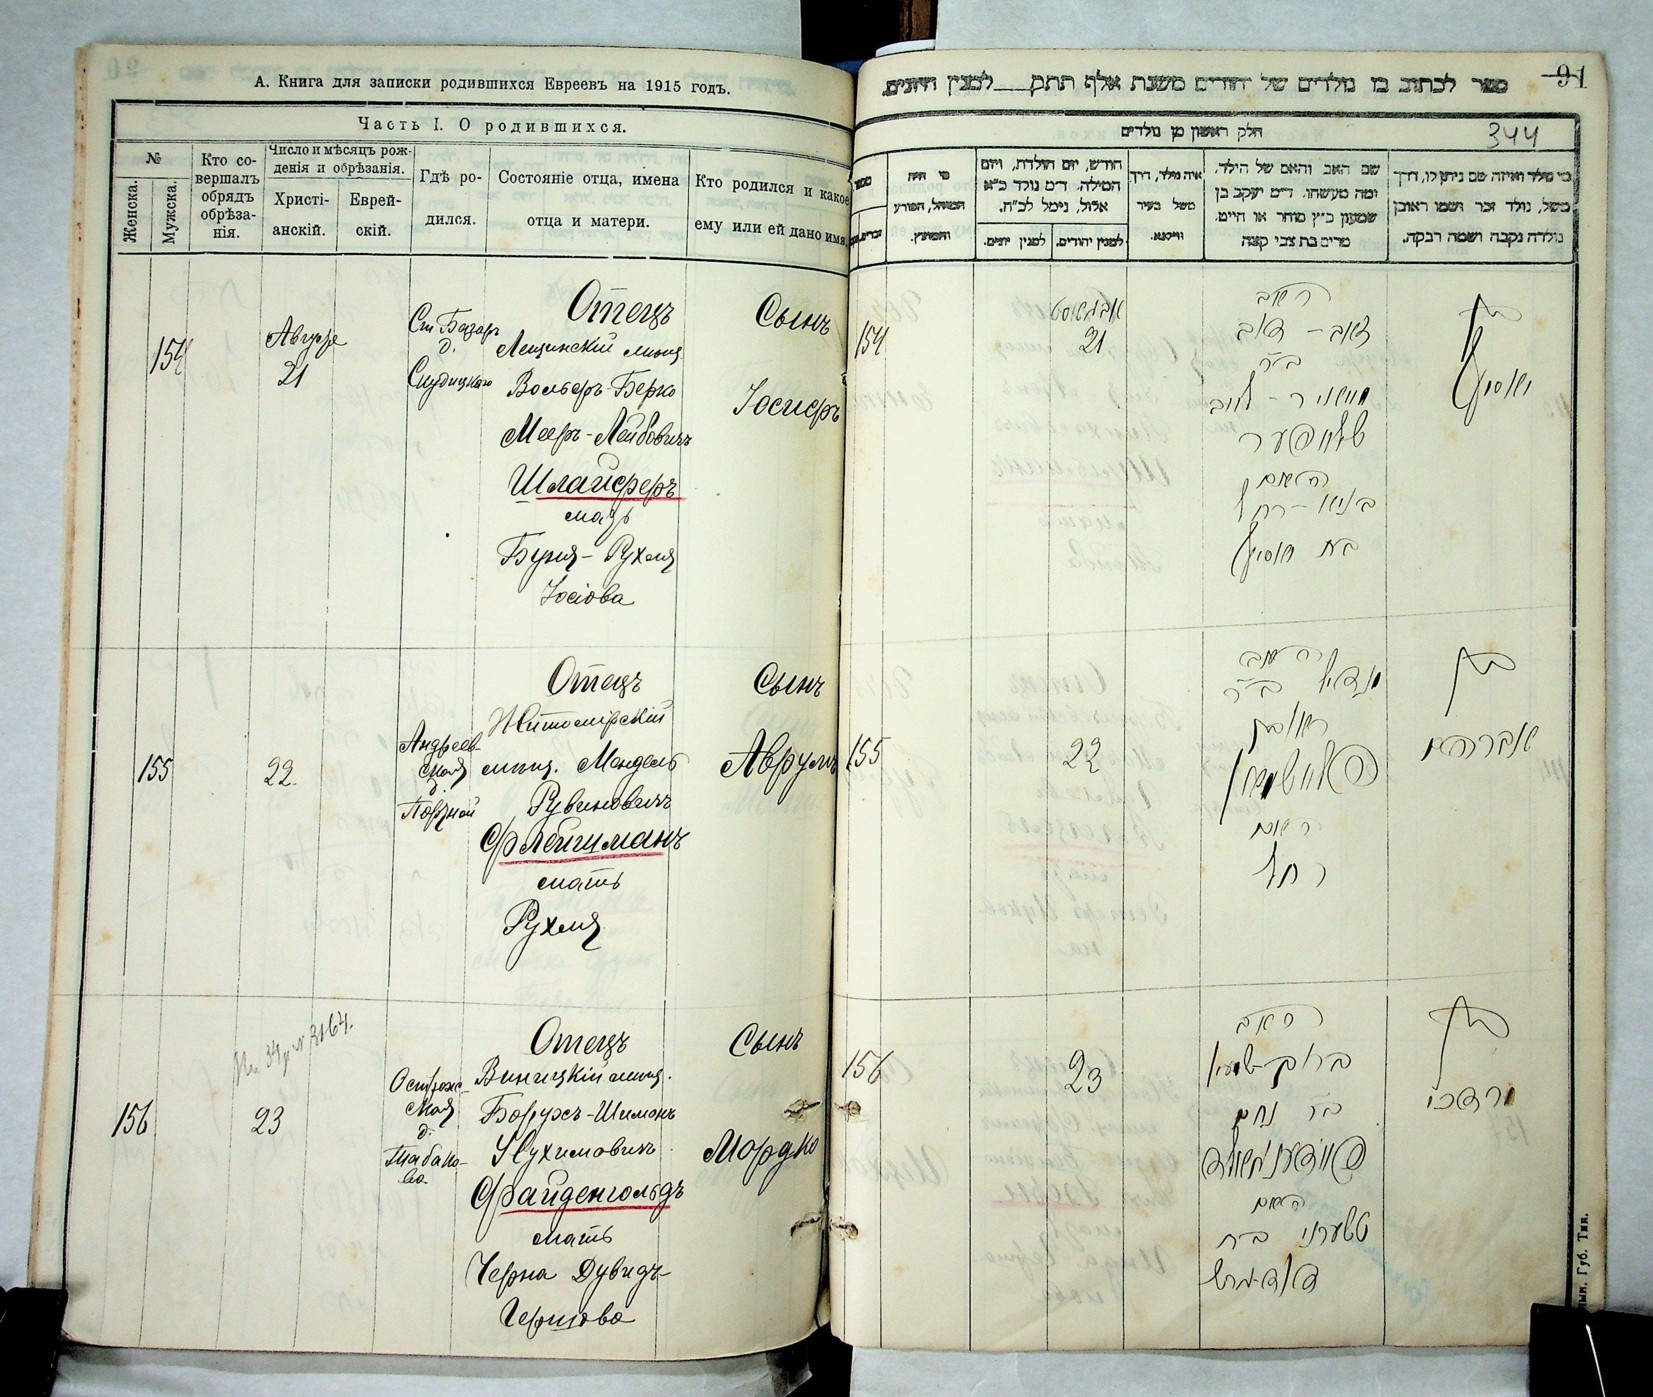 А. Книга для записки родившихся Евреевъ на 1915 годъ.
Часть I. О родившихся.
№
Женска.
Мужска.
Кто со-
вершалъ
обрядъ
обрѣза-
нія.
Число и мѣсяцъ рож-
денія и обрѣзанія.
Христі-
анскій.
Еврей-
скій.
Гдѣ ро-
дился.
Состояніе отца, имена
отца и матери.
Кто родился и какое
ему или ей дано имя.
154
Августа
21
Ст Базаръ
д.
Отецъ
Вольфъ-Берко
Мееръ-Лейбовичъ
Шлайферъ
мать
Буня-Рухля
Іосіова
Сынъ
Іосифъ
155
22.
Андреев-
ская
д.
Отецъ
Житомірскій
мѣщ. Мендель
Рувиновичъ
Флейшманъ
мать
Рухля
Сынъ
Аврумъ
156
23
Острож-
ская
д.
Табако-
ва
Отецъ
Виницкій мѣщ.
Борухъ-Шимонъ
Нухимовичъ
Файденгольдъ
мать
Черна Дувидъ-
Гершова
Сынъ
Мордко
ספר לכתוב בו נולדים של יהודים משנת אלף תתמ למנין היונים
91
חלק ראשון מן נולדים
344
מי היה
המוהל, הפורע
והמוצץ.
חודש, יום הולדת, ויום
המילה. ד״מ נולד כ״א
אלול, נימל לכ״ח.
למנין יהודים.
למנין יונים.
איה נולד, דרך
משל בעיר
ווילנא.
שם האב והאם של הילד,
ומה מעשהו. ד״מ יעקב בן
שמעון כ״ץ סוחר או חייט.
מרים בת צבי קצה
מי נולד ואיזה שם ניתן לו, דרך
משל, נולד זכר ושמו ראובן
נולדה נקבה ושמה רבקה.
154
אבגוסט
21
האב
זאב - דוב
ב״ר
מאיר - ליב
שלייפער
האם
בוניא - רחל
בת יאסיף
בן
יאסיף
155
22
האב
מענדיל ב״ר
ראובן
פליישמאן
האם
רחל
בן
אברהם
156
23
האב
ברוך-שמעון
ב״ר נחום
האם
טשערני ב״ר
דוד-הרש
בן
מרדכי